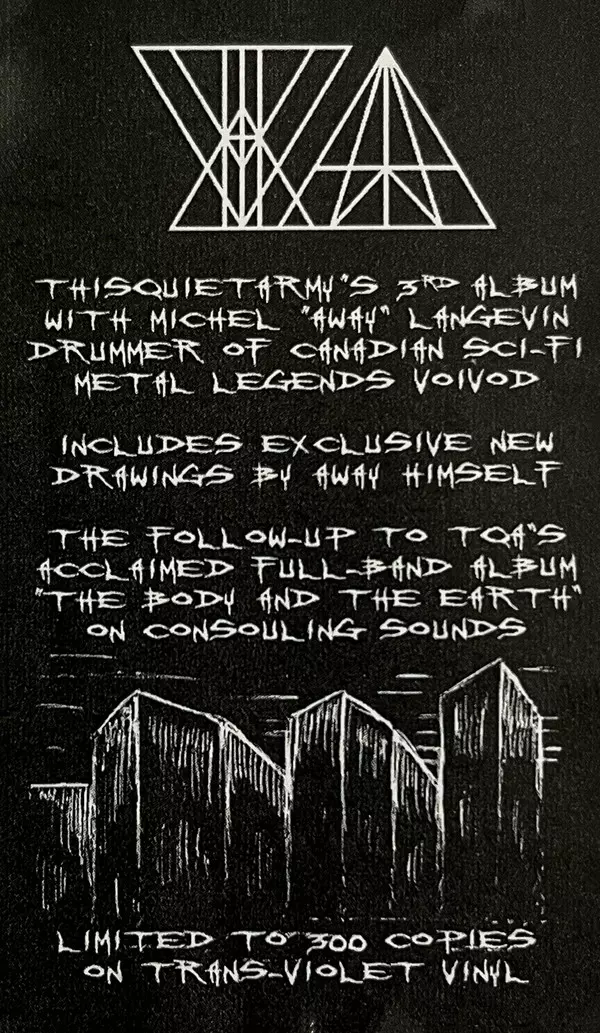 THISQUIETARMY"S 3RD ALBUM
WITH MICHEL "AWAY" LANGEVIN
DRUMMER OF CANADIAN SCI-FI
METAL LEGENDS VOIVOD
INCLUDES EXCLUSIVE NEW
DRAWINGS BY AWAY HIMSELF
THE FOLLOW-UP TO TQA"S
ACCLAIMED FULL-BAND ALBUM
"THE BODY AND THE EARTH"
ON CONSOULING SOUNDS
LIMITED TO 300 COPIES
ON TRANS-VIOLET VINYL